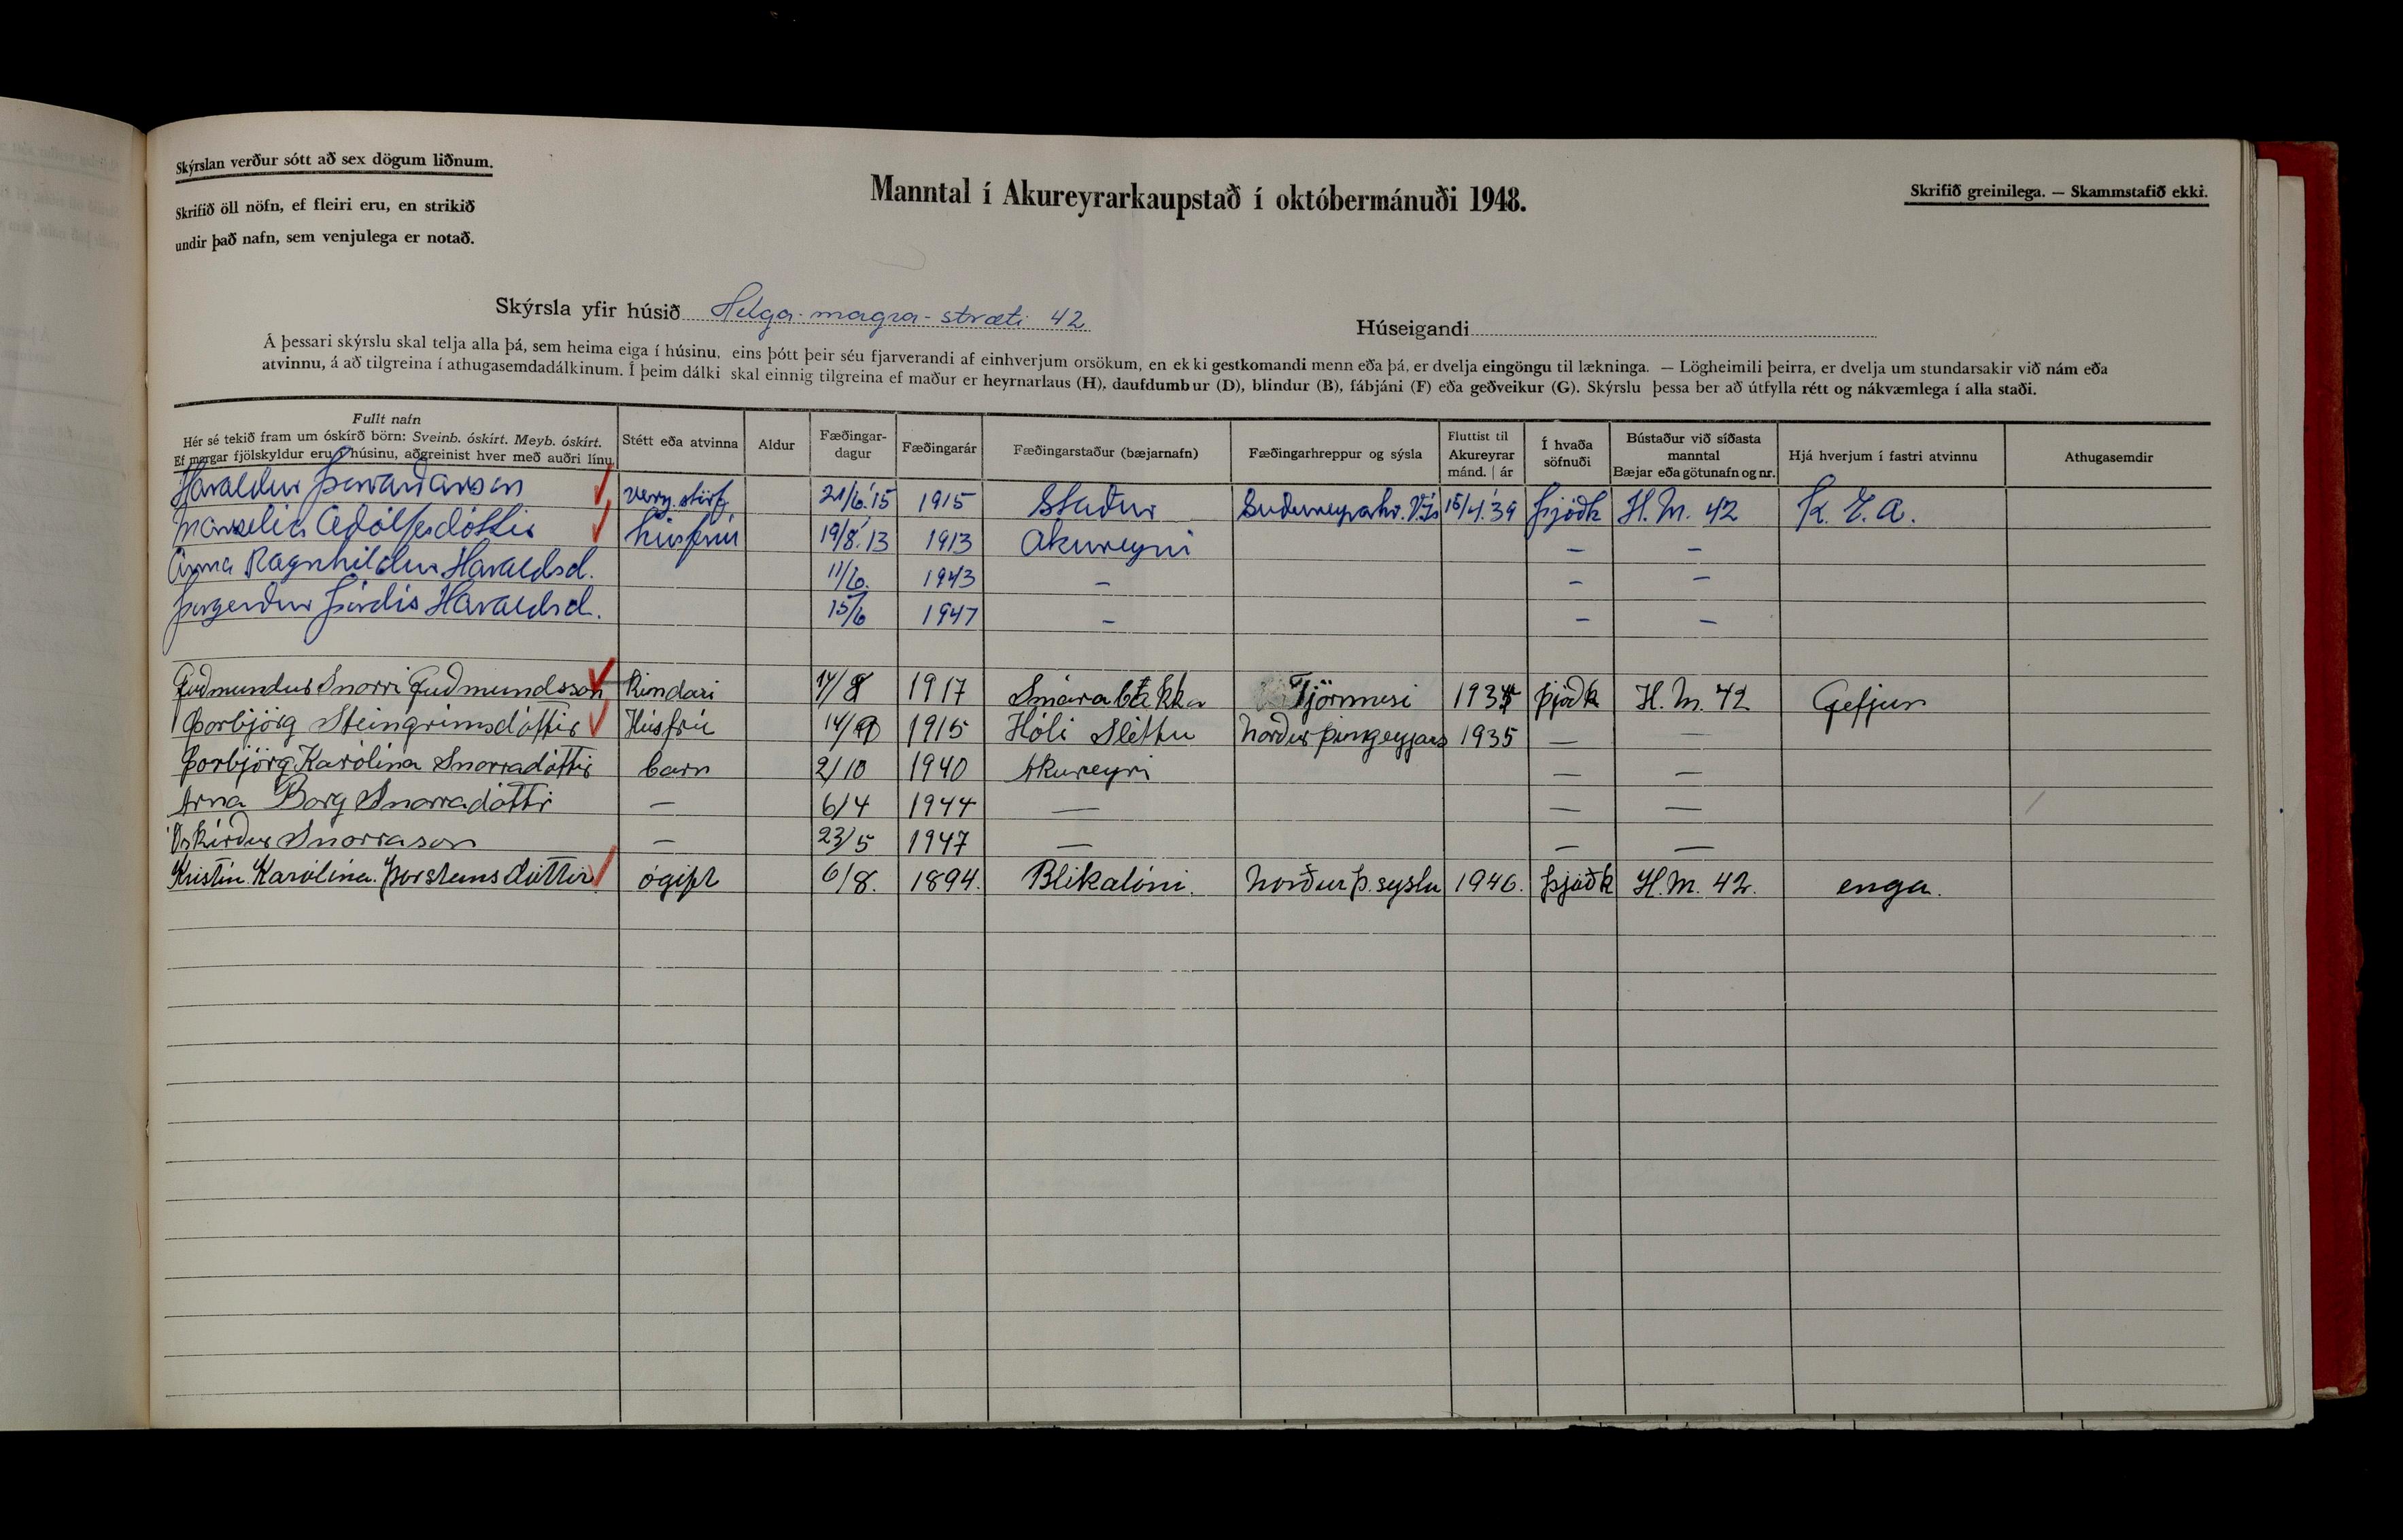 Skýrslan verður sótt að sex dögum liðnum.
Skrifið öll nöfn, ef fleiri eru, en strikið
undir það nafn, sem venjulega er notað.
Manntal í Akureyrarkaupstað í októbermánuði 1948.
Skrifið greinilega. — Skammstafið ekki.
Skýrsla yfir húsið Helga-magra-stræti 42
Húseigandi
Á þessari skýrslu skal telja alla þá, sem heima eiga í húsinu, eins þótt þeir séu fjarverandi af einhverjum orsökum, en ekki gestkomandi menn eða þá, er dvelja eingöngu til lækninga. — Lögheimili þeirra, er dvelja um stundarsakir við nám eða
atvinnu, á að tilgreina í athugasemdadálkinum. Í þeim dálki skal einnig tilgreina ef maður er heyrnarlaus (H), daufdumbur (D), blindur (B), fábjáni (F) eða geðveikur (G). Skýrslu þessa ber að útfylla rétt og nákvæmlega í alla staði.
Fullt nafn
Hér sé tekið fram um óskírð börn: Sveinb. óskírt. Meyb. óskírt.
Ef margar fjölskyldur eru í húsinu, aðgreinist hver með auðri línu
Stétt eða atvinna
Aldur
Fæðingar-
dagur
Fæðingarár
Fæðingarstaður (bæjarnafn)
Fæðingarhreppur og sýsla
Fluttist til
Akureyrar
mánd. | ár
Í hvaða
söfnuði
Bústaður við síðasta
manntal
Bæjar eða götunafn og nr.
Hjá hverjum í fastri atvinnu
Athugasemdir
Haraldur Þorvarðarson verz. 21/6.'15 1915 Staður 15/4.'39 Þjóðk H.M. 42 K.E.A.
Adólfsdóttir húsfrú 19/8.'13 1913 Akureyri — —
Anna Ragnhildur Haraldsd. 11/6. 1943 — — —
Þorgerður Þórdís Haraldsd. 15/6 1947 — — —
Guðmundur Snorri Guðmundsson Kindari 14/8 1917 Tjörnnesi Þjóðk H.M. 42 Gefjun
Þorbjörg Steingrímsdóttir Húsfrú 1915 Hóli Sléttu Norður Þingeyjars 1935 — —
Þorbjörg Karólína Snorradóttir barn 2/10 1940 Akureyri — —
Arna Borg Snorradóttir — 6/4 1944 — — —
Óskírður Snorrason — 23/5 1947 — — —
Kristín Karólína Þorsteinsdóttir ógipt 6/8. 1894. Blikalóni. Norður Þ. syslu 1946. Þjóðk H.M. 42. enga.